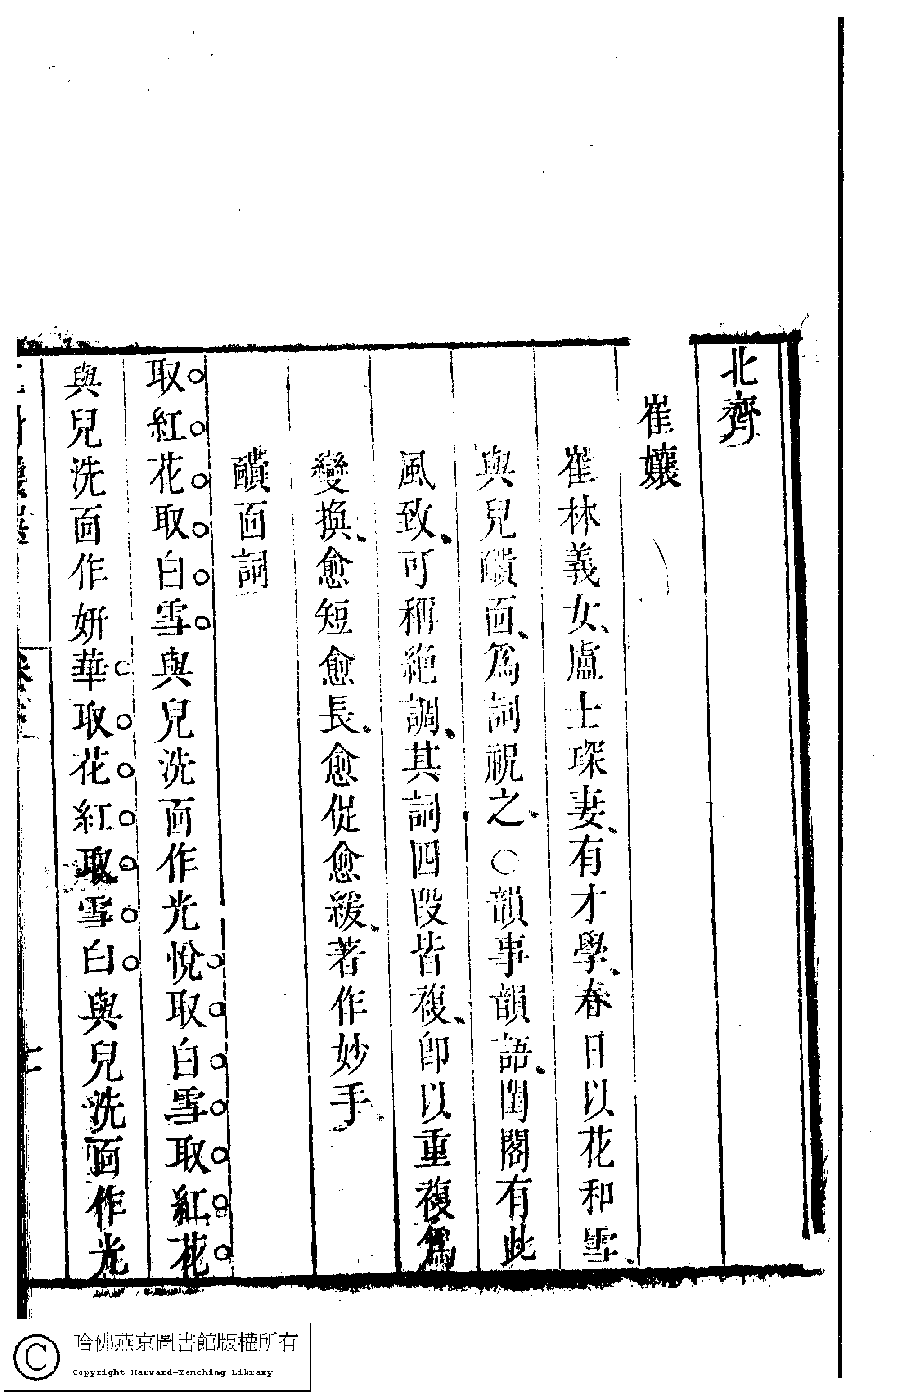 北齊
崔㜶
崔林義女、盧士琛妻、有才學、春日以花和雪、
與兒靧面、爲詞祝之、○韻事韻語、閨閣有此
風致、可稱絶調、其詞四段皆複、卽以重複爲
變換、愈短愈長、愈促愈緩、著作妙手、
靧面詞
取紅花取白雪與兒洗面作光悅取白雪取紅花
與兒洗面作妍華取花紅取雪白與兒洗面作光
哈佛燕京圖書館版權所有
Copyright Harvard-Yenching Library